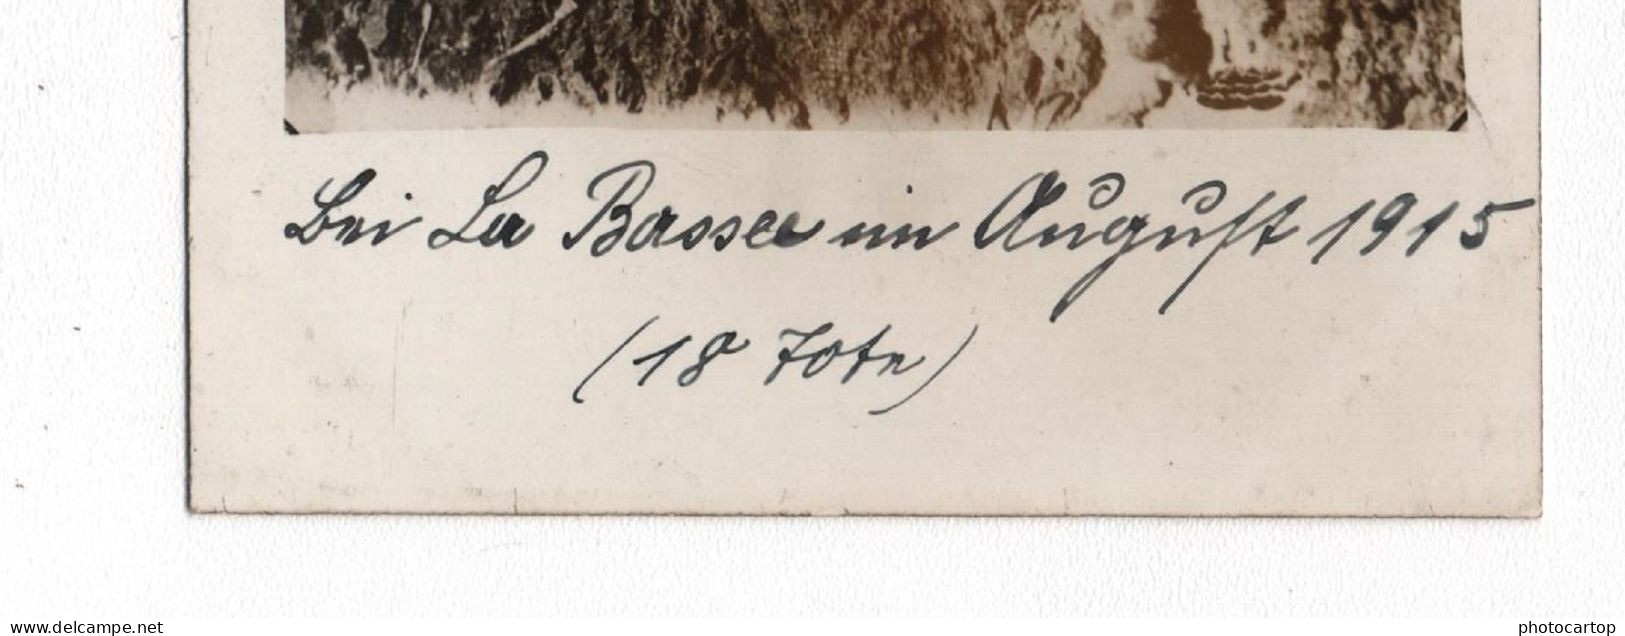 Bei La Bassee im August 1915
(18 Tote)
www.delcampe.net
photocartop